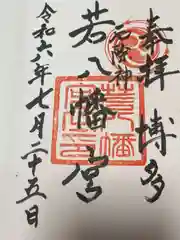 奉拝 博多
厄除神
若八幡宮
令和六年七月二十五日